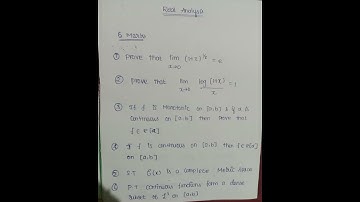 Real Analysis
5 Marks
① Prove that lim (1+x)^1/x = e
x→0
② Prove that lim log(1+x)/x = 1
x→0
③ If f is Monotonic on [a,b] & if α is
continuous on [a,b] then prove that
f ∈ R(α)
④ If f is continuous on [a,b] then f ∈ R(α)
on [a,b]
⑤ S.T is a complete Metric space
⑥ P.T continuous functions form a dense
subset of L² on [a,b]